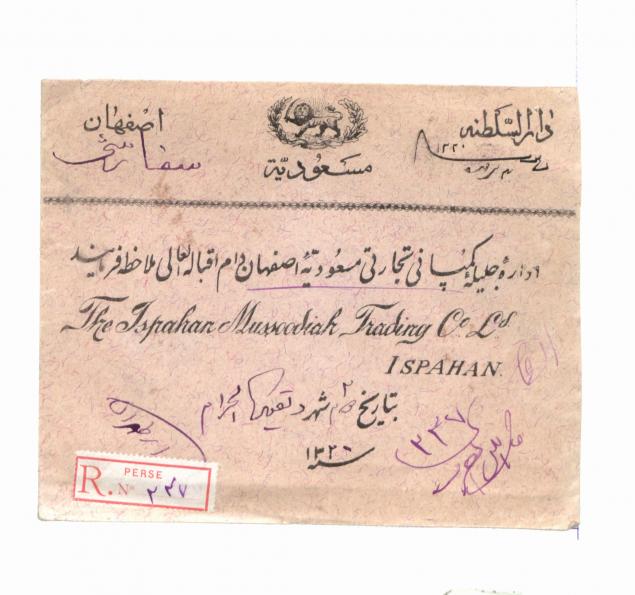 دارالسّلطنه
اصفهان
١٣٢٠
سفارشی
مسعودیّه
ادارهٔ جلیلهٔ کمپانی تجارتی مسعودیهٔ اصفهان دام اقباله العالی ملاحظه فرمایند
The Ispahan Mussoodiah Trading Co Ld
ISPAHAN.
بتاریخ ٢ شهر ذیقعده الحرام
از طهران
٢٣٧
سنه ١٣٢٠
PERSE
R. No ٢٣٧